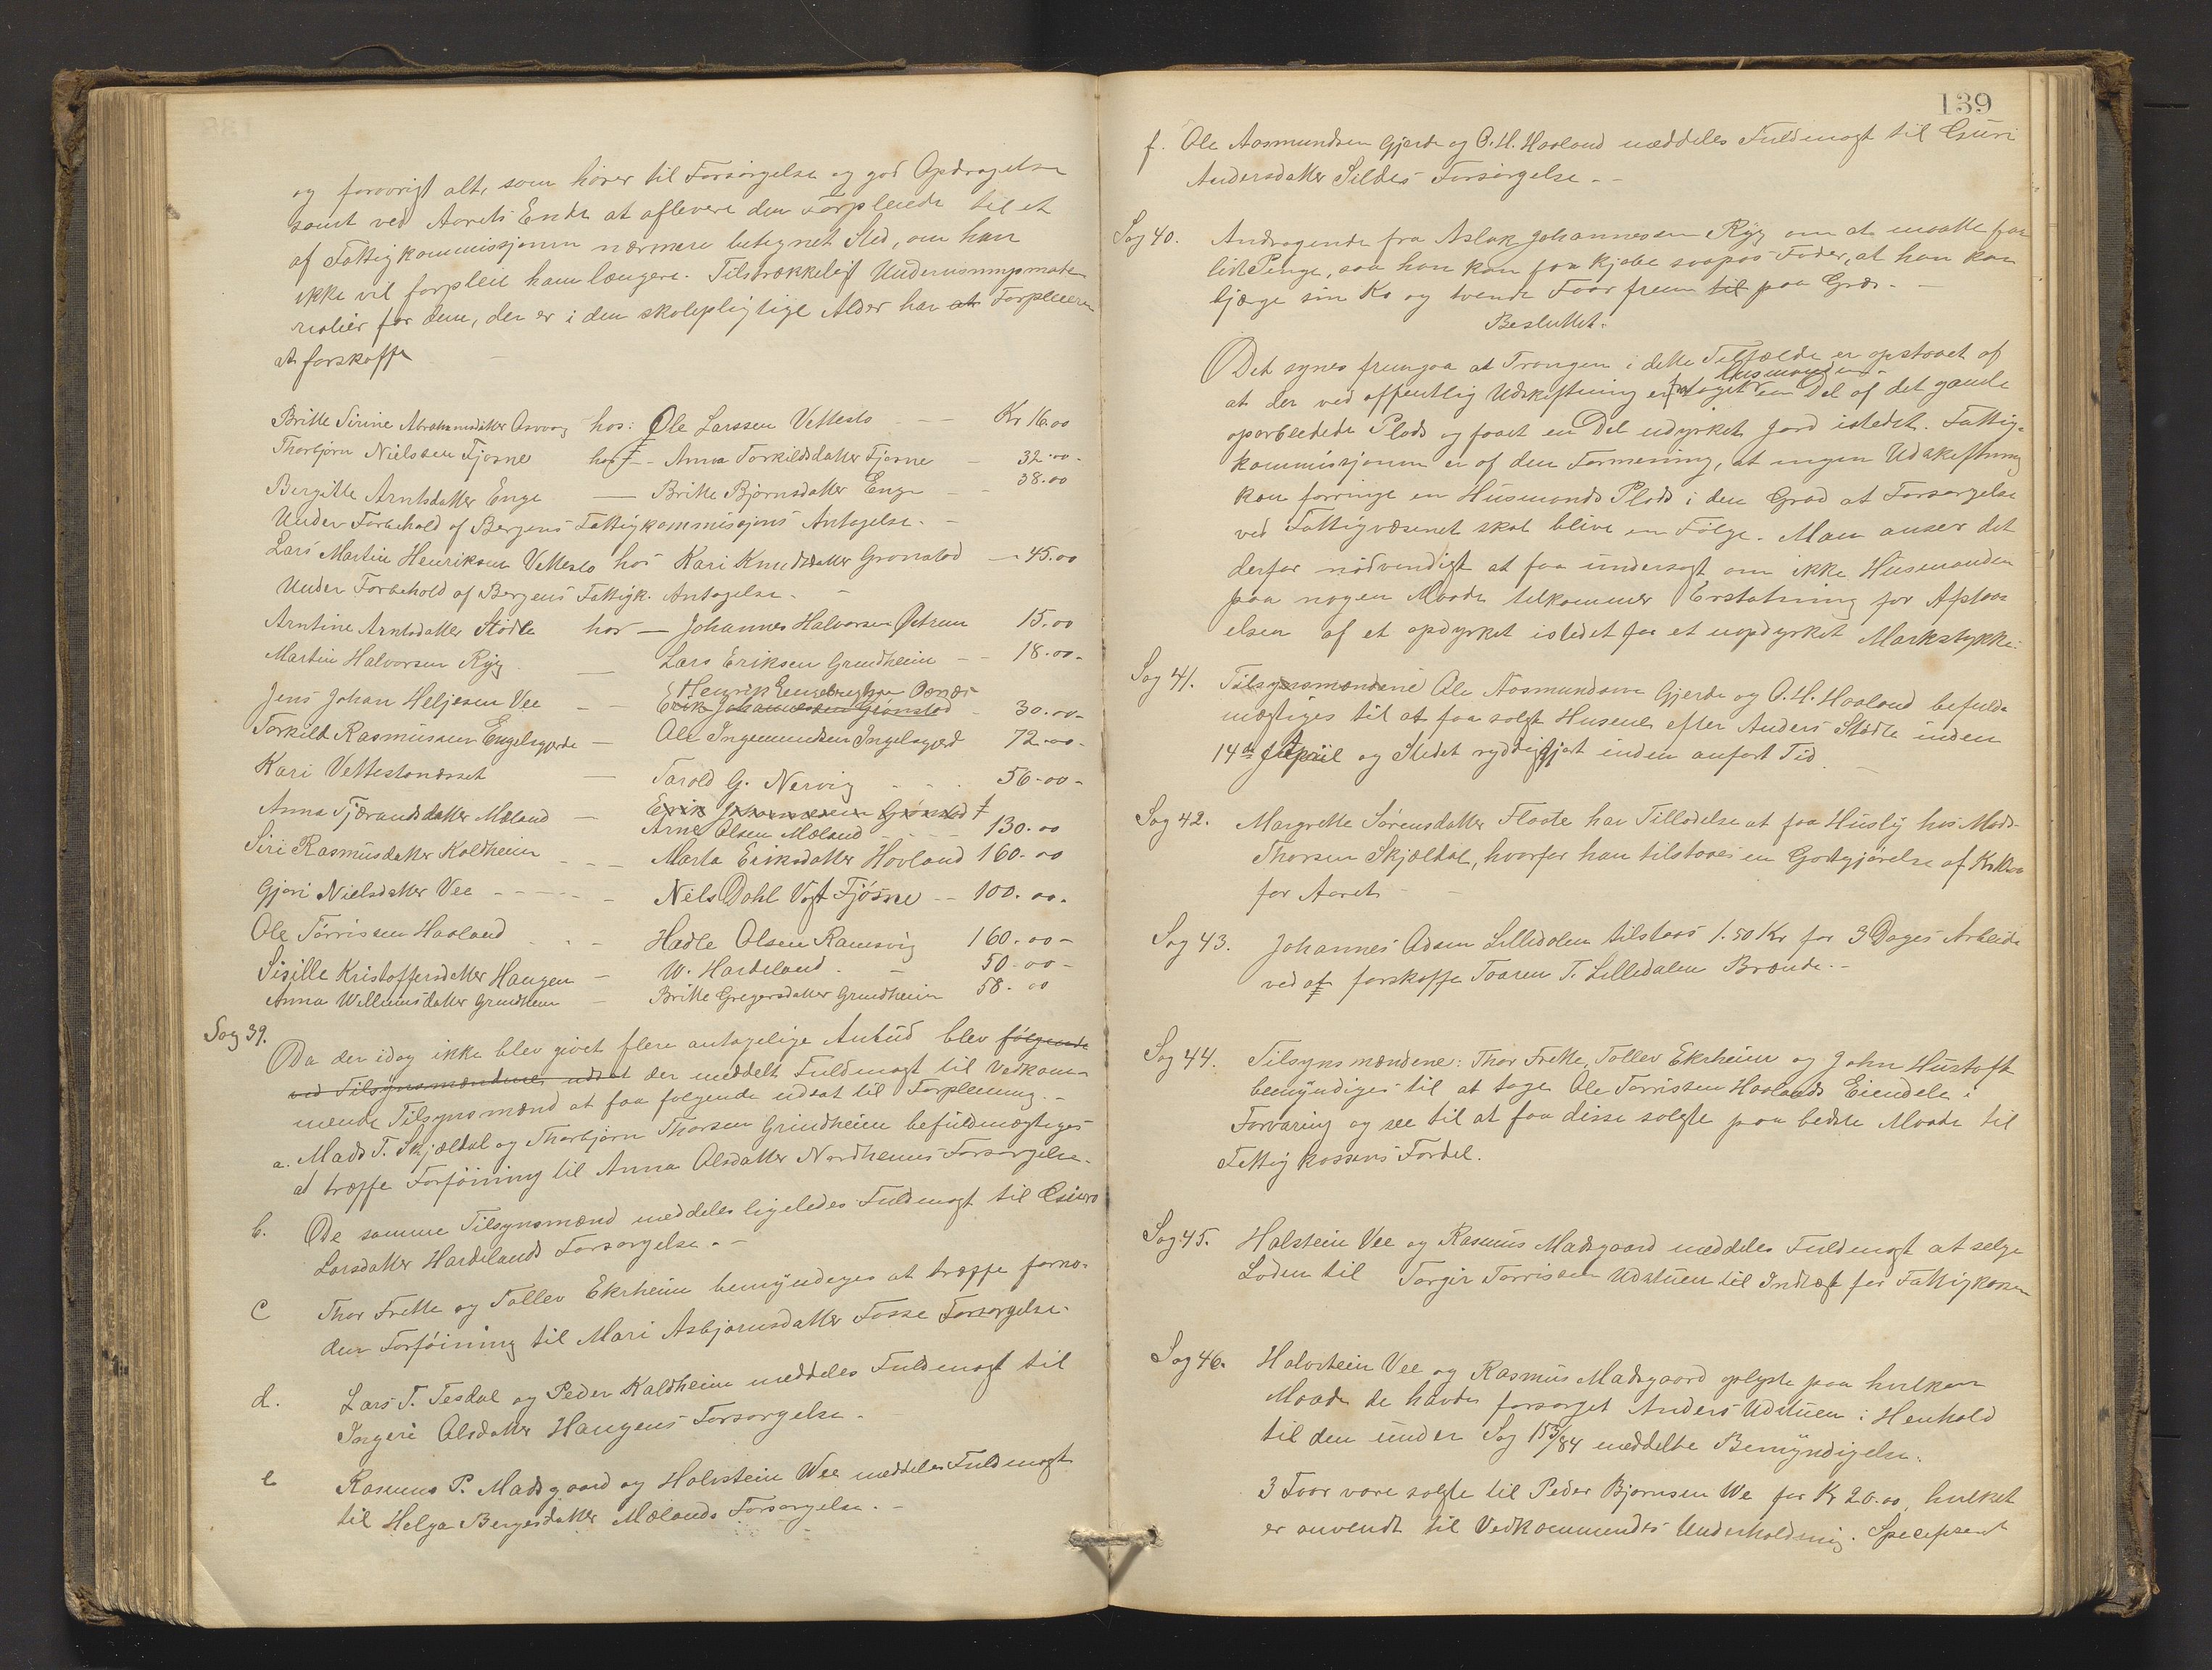 og forovrigt alt, som hörer til Forsörgelse og god Opdragelse
samt ved Aarets Ende at aflevere den Forpleiede til et
af Fattigkommissjonen nærmere betegnet Sted, om han
ikke vil forpleie ham længere. Tilstrækkeligt Undervisningsmate
rialier for dem, der er i den skolepligtige Alder har at Forpleieren
at forskaffe
Britte Sirine Abrahamsdatter Osvaag hos: Ole Larssen Vettesto — Kr 16.00
Thorbjörn Nielssen Fjosne hos — Anna Torkildsdatter Fjosne — 32.00.
Bergitte Arntsdatter Enge — Britte Bjornsdatter Enge — 38.00
Under Forbehold af Bergens Fattigkommissjons Antagelse. —
Lars Martin Henriksen Vettesto hos Kari Knudsdatter Gronstad — 45.00
Under Forbehold af Bergens Fattigk. Antagelse. —
Arntine Arntsdatter Stödle hos — Johannes Halvorsen Østrem 15.00
Martin Halvorsen Ryg — Lars Eriksen Grindheim — 18.00.
Henrik Osnes
Jens Johan Heljesen Vee — Erik Johannessen Grönstad 30.00.
Torkild Rasmussen Engelsgjerde — Ole Ingemundsen Ingelsgjerd 72.00.
Kari Vettestonesset — Tarold G. Nervig 56.00.
Anna Tjærandsdatter Mæland — Erik Johannessen Grönstad
Arne Olsen Mæland — 130.00
Siri Rasmusdatter Kaldheim — Marta Eriksdatter Hovland 160.00
Gjöri Nielsdatter Vee — Nels Dahl Vogt Fjösne — 100.00.
Ole Törrissen Haaland — Hadle Olsen Ramsvig 160.00 —
Sisille Kristoffersdatter Haugen — W. Hardeland. — 50.00 —
Anna Willumsdatter Grindheim — Britte Gregersdatter Grindheim 58.00
Sag 39.
Da der idag ikke blev givet flere antagelige Anbud blev følgende
ved Tilsynsmændene udsat der meddelt Fuldmagt til Vedkom-
mende Tilsynsmænd at faa følgende udsat til Forpleining. —
a. Mads T. Skjældal og Thorbjörn Thorsen Grindheim befuldmægtiges
at træffe Forföining til Anna Olsdatter Nordheims Forsorgelse.
b. De samme Tilsynsmænd meddeles ligeledes Fuldmagt til
Larsdatter Hardelands Forsorgelse. —
c Thor Frette og Tollev Ekrheim bemyndeges at træffe forno-
den Forföining til Mari Asbjornsdatter Fosse Forsorgelse
d. Lars T. Tesdal og Peder Kaldheim meddeles Fuldmagt til
Ingeri Olsdatter Haugens Forsorgelse.
e Rasmus P. Madsgaard og Halvstein Wee meddeles Fuldmagt
til Helga Bergesdatter Mælands Forsorgelse. —
139
f. Ole Aasmundsen Gjerde og O. H. Haaland meddeles Fuldmagt til Guri
Andersdatter Sildes Forsörgelse. —
Sag 40. Andragende fra Aslak Johannessen Ryg om at maatte faa
lidt Penge, saa han kan faa kjøbe saapas Foder, at han kan
bjærge sin Ko og tvende Faar frem til paa Græs. —
Besluttet:
Det synes fremgaa at Trangen i dette Tilfælde er opstaaet af
Husmanden
at der ved offentlig Udskiftning er frataget en Del af det gamle
oparbeidede Plads og faaet en Del udyrket Jord istedet. Fattig-
kommissjonen er af den Formening, at ingen Udskiftning
kan forringe en Husmands Plads i den Grad at Forsorgelse
ved Fattigvæsenet skal blive en Følge. Man anser det
derfor nödvendigt at faa undersøgt om ikke Husmanden
paa nogen Maade tilkommer Erstatning for Afstaa-
elsen af et opdyrket istedet for et uopdyrket Markstykke.
Sag 41. Tilsynsmændene Ole Aasmundsen Gjerde og O. H. Haaland befuld-
mægtiges til at faa solgt Husene efter Anders Stödle inden
14de April og Stedet ryddiggjort inden anført Tid. —
Sag 42. Margrette Sörensdatter Flaate har Tilladelse at faa Husly hos Mads
Thorsen Skjældal, hvorfor han tilstaaes en Godtgjörelse af Kr
for Aaret —
Sag 43. Johannes Odsen Lilledalen tilstaas 1.50 Kr for 3 Dages Arbeide
ved at forskaffe Toaren T. Lilledalen Brænde. —
Sag 44. Tilsynsmændene: Thor Frette, Tollev Ekrheim og John Hustoft
bemyndiges til at tage Ole Torrissen Haalands Eiendele i
Forvaring og see til at faa disse solgte paa bedste Maade til
Fattigkassens Fordel.
Sag 45. Halstein Vee og Rasmus Madsgaard meddeles Fuldmagt at selge
Loden til Torgir Torrissen Udstuen til Indtægt for Fattigkassen
Sag 46. Halvstein Vee og Rasmus Madsgaard oplyste paa hvilken
Maade de havde forsørget Anders Udstuen i Henhold
til den under Sag 153/84 meddelte Bemyndigelse.
3 Faar vare solgte til Peder Bjornsen We for Kr 20.00, hvilket
er anvendt til Vedkommendes Underholdning. Specificeret